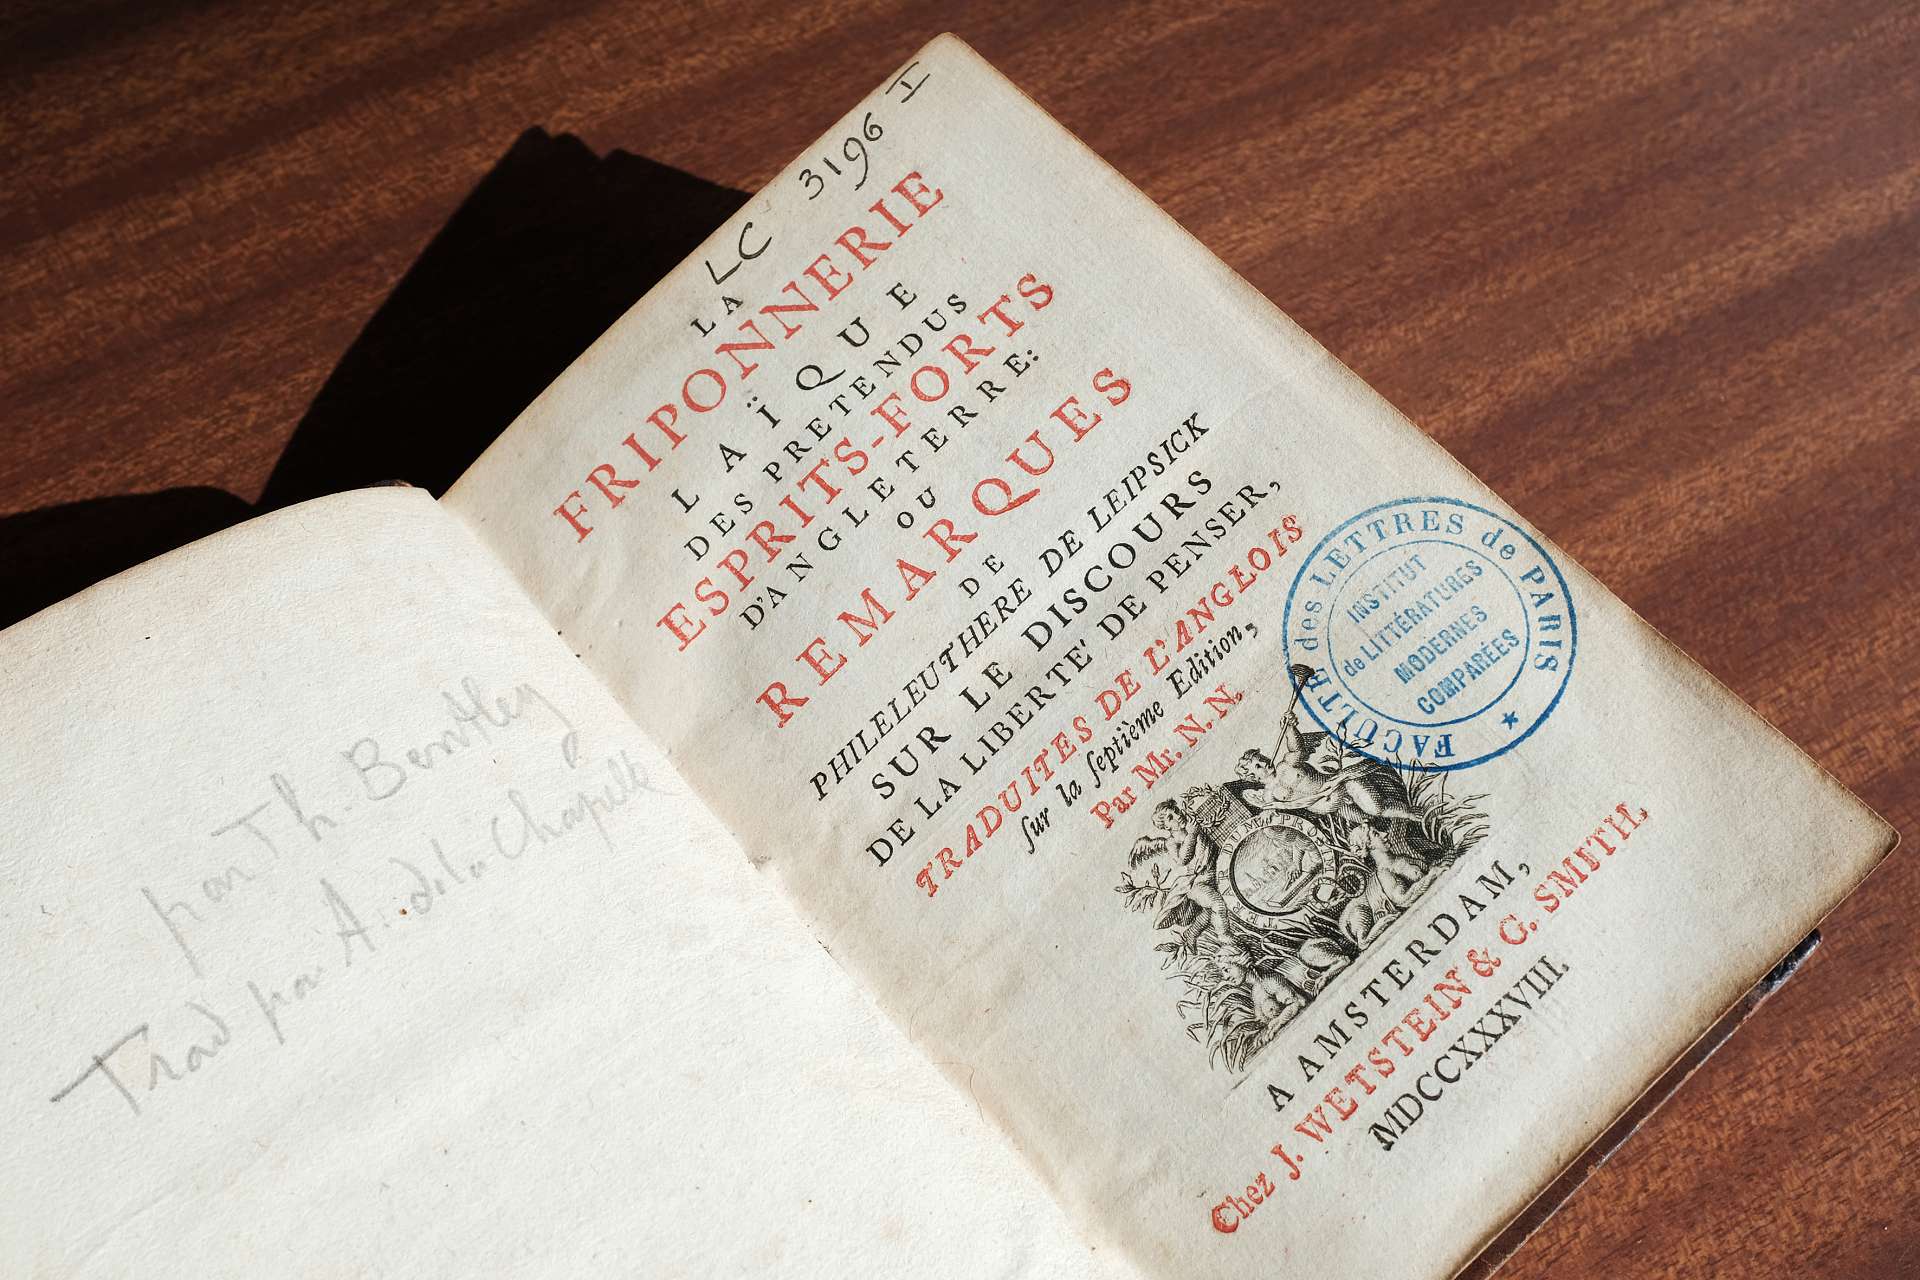 par Th. Bentley
Trad par A. de la Chapelle
LC 3196 I
LA
FRIPONNERIE
LAÏQUE
DES PRETENDUS
ESPRITS-FORTS
D'ANGLETERRE:
OU
REMARQUES
DE
PHILELEUTHERE DE LEIPSICK
SUR LE DISCOURS
DE LA LIBERTE' DE PENSER,
TRADUITES DE L'ANGLOIS
ſur la ſeptième Edition,
Par Mr. N. N.
FACULTÉ des LETTRES de PARIS
INSTITUT
de LITTÉRATURES
MODERNES
COMPARÉES
TERAR DUM PRO
A AMSTERDAM,
Chez J. WETSTEIN & G. SMITH.
MDCCXXXVIII.